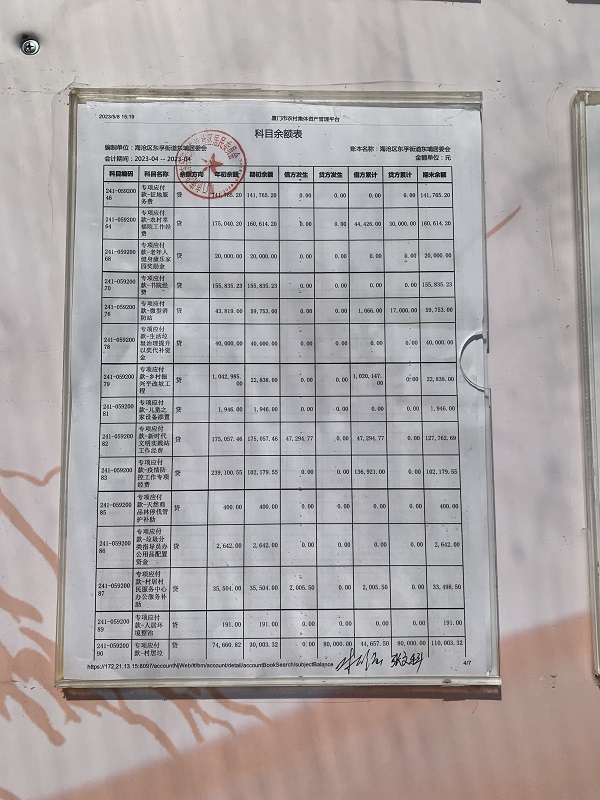 2023/5/6 15:19 厦门市农村集体资产管理平台
科目余额表
编制单位：海沧区东孚街道东埔居委会 账本名称：海沧区东孚街道东埔居委会
会计期间：2023-04 -- 2023-04 金额单位：元
科目编码 科目名称 余额方向 年初余额 期初余额 借方发生 贷方发生 借方累计 贷方累计 期末余额
241-0592046 专项应付款-征地服务费 贷 141,765.20 141,765.20 0.00 0.00 0.00 0.00 141,765.20
241-0592064 专项应付款-农村幸福院工作经费 贷 175,040.20 160,614.20 0.00 0.00 44,426.00 30,000.00 160,614.20
241-0592068 专项应付款-老年人健身康乐家园奖励金 贷 20,000.00 20,000.00 0.00 0.00 0.00 0.00 20,000.00
241-0592070 专项应付款-书院经费 贷 155,835.23 155,835.23 0.00 0.00 0.00 0.00 155,835.23
241-0592076 专项应付款-微型消防站 贷 43,819.00 59,753.00 0.00 0.00 1,066.00 17,000.00 59,753.00
241-0592078 专项应付款-生活垃圾治理提升以奖代补资金 贷 40,000.00 40,000.00 0.00 0.00 0.00 0.00 40,000.00
241-0592079 专项应付款-乡村振兴平改坡工程 贷 1,042,985.00 22,838.00 0.00 0.00 1,020,147.00 0.00 22,838.00
241-0592081 专项应付款-儿童之家设备添置 贷 1,946.00 1,946.00 0.00 0.00 0.00 0.00 1,946.00
241-0592082 专项应付款-新时代文明实践站工作经费 贷 175,057.46 175,057.46 47,294.77 0.00 47,294.77 0.00 127,762.69
241-0592083 专项应付款-疫情防控工作专项经费 贷 239,100.55 102,179.55 0.00 0.00 136,921.00 0.00 102,179.55
241-0592085 专项应付款-天然商品林停伐管护补助 贷 400.00 400.00 0.00 0.00 0.00 0.00 400.00
241-0592086 专项应付款-垃圾分类指导员办公用品配置资金 贷 2,642.00 2,642.00 0.00 0.00 0.00 0.00 2,642.00
241-0592087 专项应付款-村居村民服务中心办公服务补助 贷 35,504.00 35,504.00 2,005.50 0.00 2,005.50 0.00 33,498.50
241-0592089 专项应付款-人居环境整治 贷 191.00 191.00 0.00 0.00 0.00 0.00 191.00
241-0592090 专项应付款-村居垃 贷 74,660.82 30,003.32 0.00 80,000.00 44,657.50 80,000.00 110,003.32
4/7